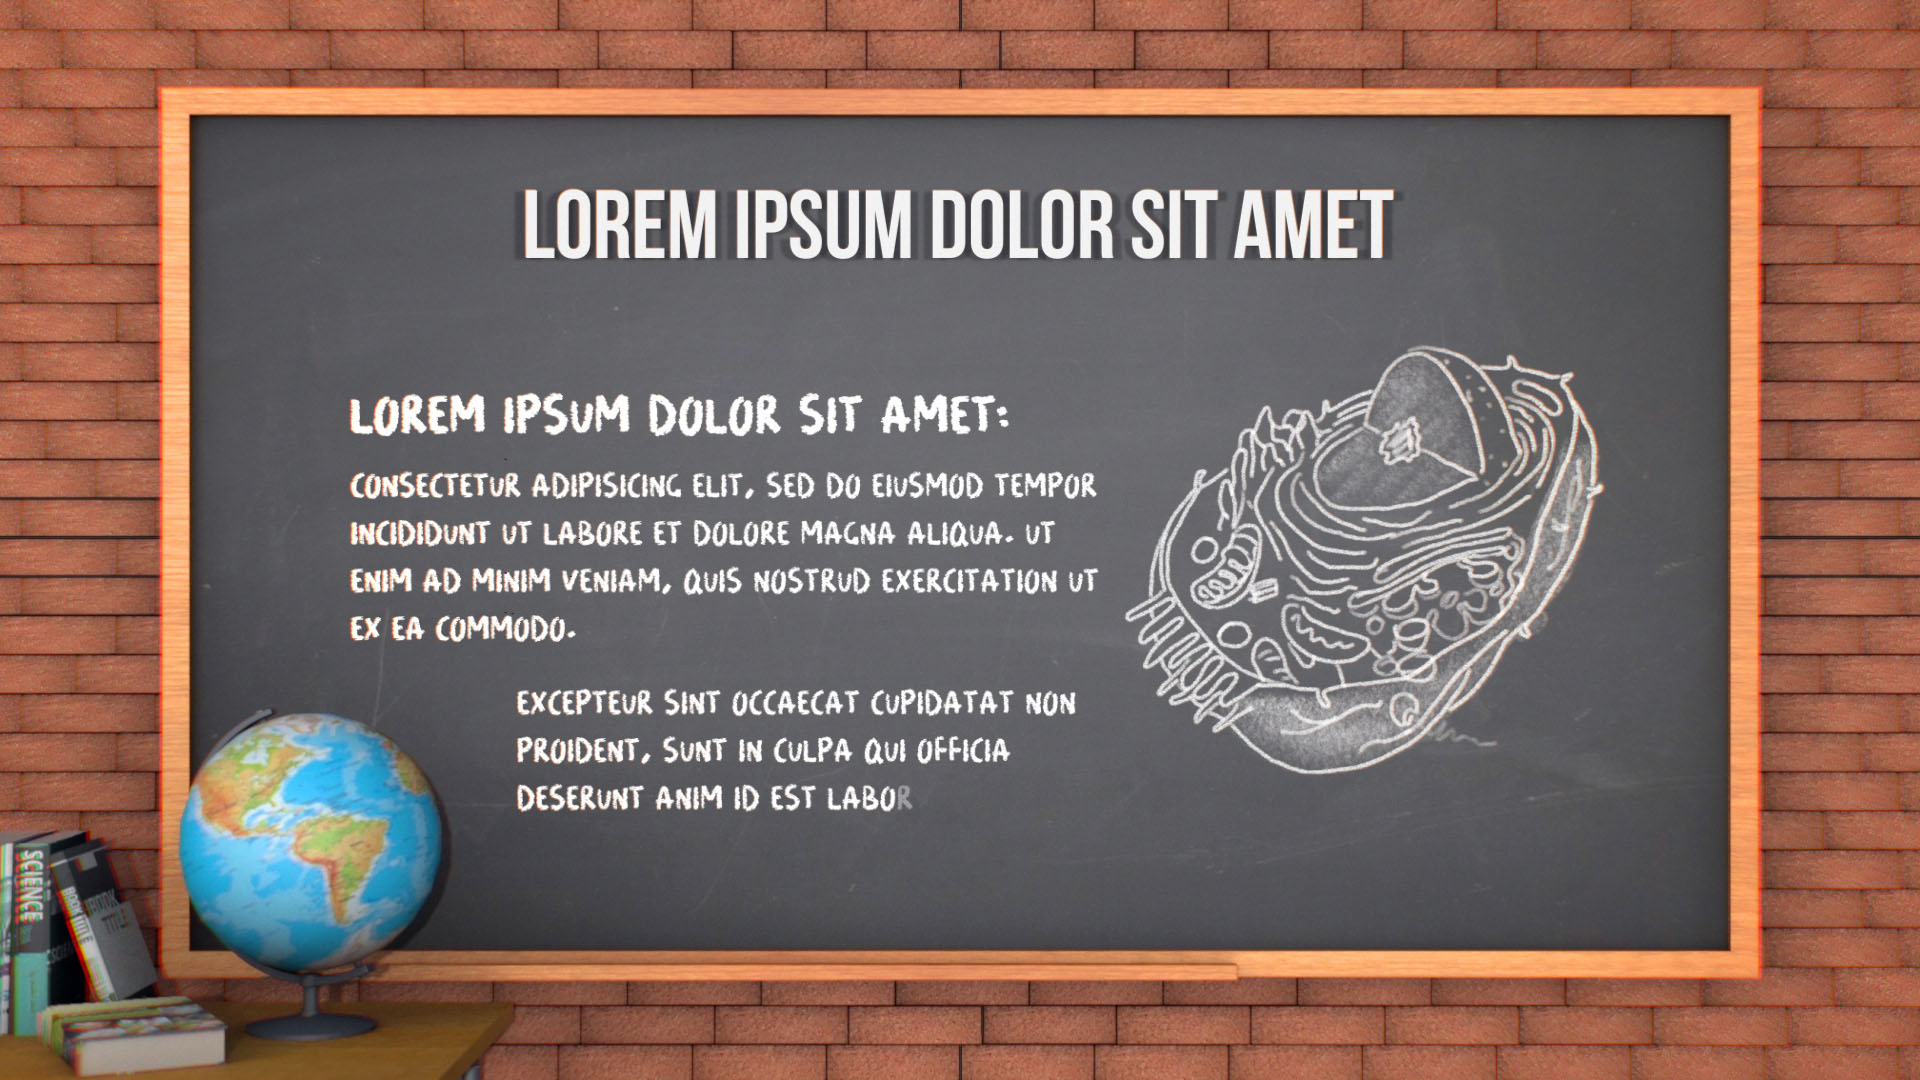 LOREM IPSUM DOLOR SIT AMET
LOREM IPSUM DOLOR SIT AMET:
CONSECTETUR ADIPISICING ELIT, SED DO EIUSMOD TEMPOR
INCIDIDUNT UT LABORE ET DOLORE MAGNA ALIQUA. UT
ENIM AD MINIM VENIAM, QUIS NOSTRUD EXERCITATION UT
EX EA COMMODO.
EXCEPTEUR SINT OCCAECAT CUPIDATAT NON
PROIDENT, SUNT IN CULPA QUI OFFICIA
DESERUNT ANIM ID EST LABOR
SCIENCE
BOOK
TITLE